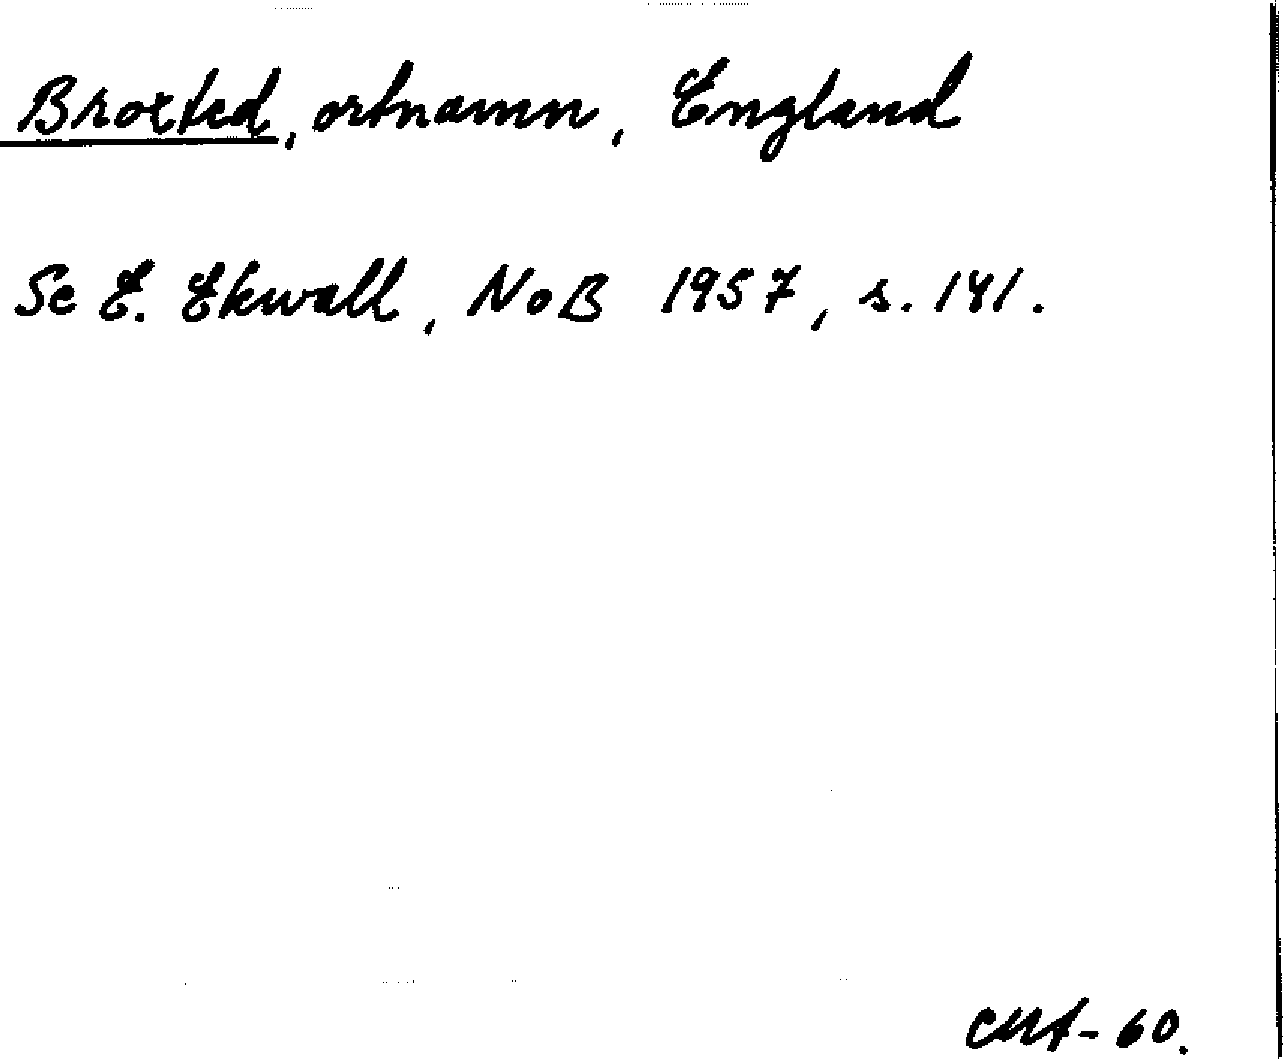 Broxted, ortnamn, England
Se E. Ekwall, NoB 1957, s. 141.
-60.